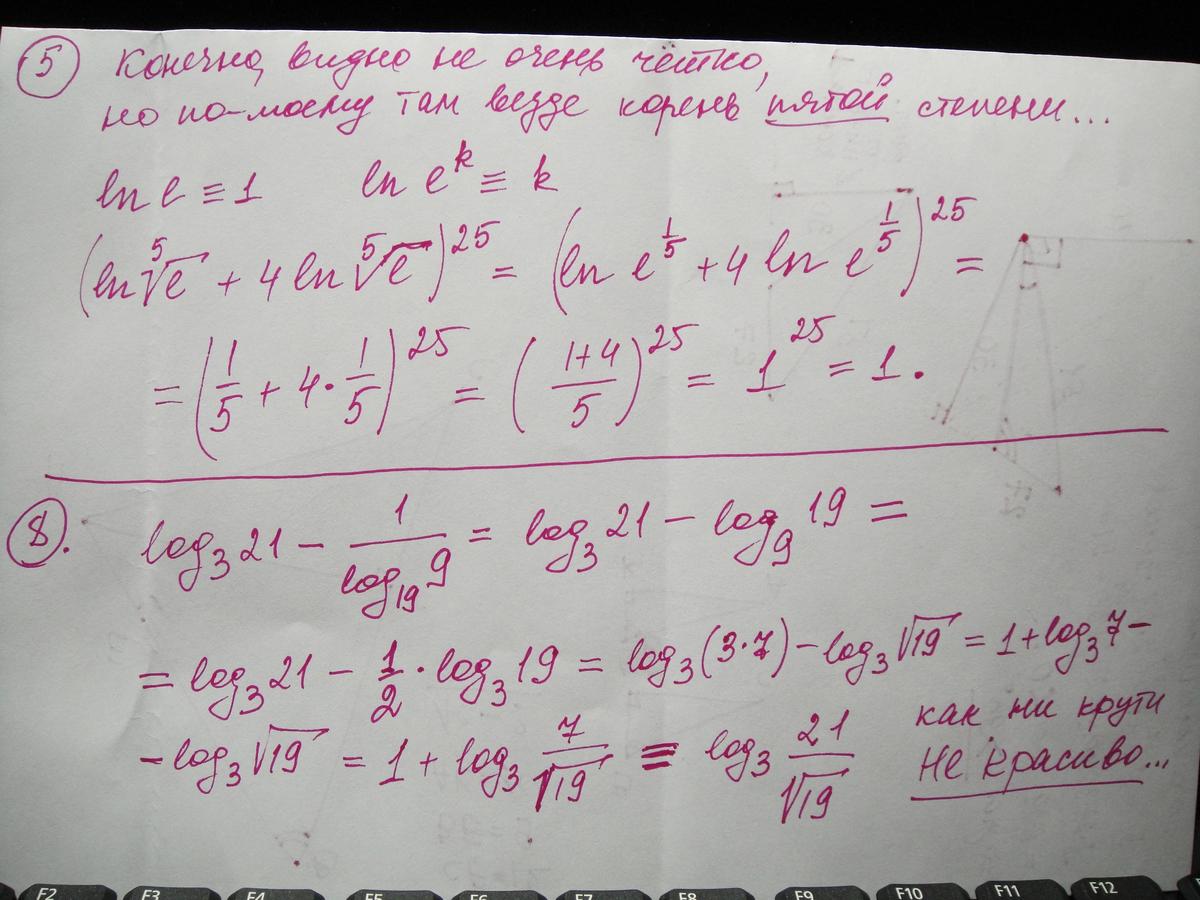 5 Конечно, видно не очень чётко,
но по-моему там везде корень пятой степени...
ln e ≡ 1 ln e^k ≡ k
(ln ⁵√e + 4 ln ⁵√e)^25 = (ln e^(1/5) + 4 ln e^(1/5))^25 =
= (1/5 + 4 · 1/5)^25 = ((1+4)/5)^25 = 1^25 = 1.
8. log₃21 − 1/(log₁₉9) = log₃21 − log₉19 =
= log₃21 − 1/2 · log₃19 = log₃(3·7) − log₃√19 = 1 + log₃7 −
− log₃√19 = 1 + log₃ 7/√19 ≡ log₃ 21/√19 как ни крути
не красиво...
F2 F3 F4 F5 F6 F7 F8 F9 F10 F11 F12